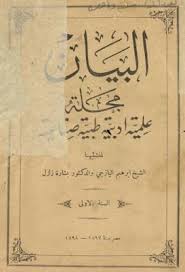 البيان
مجلة
علمية ادبية طبية صناعية
لمنشئيها
الشيخ ابرهيم اليازجي والدكتور بشارة زلزل
السنة الاولى
مصر سنة ١٨٩٧ - ١٨٩٨